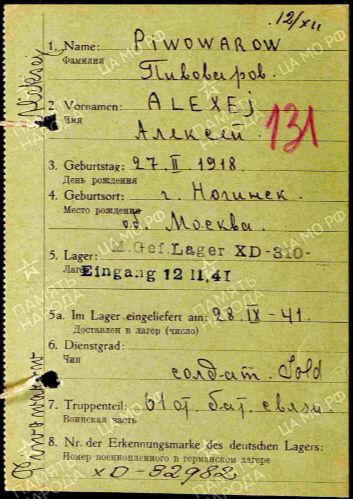 12/XII
1. Name: PIWOWAROW
Фамилия Пивоваров.
2 Vornamen: ALEXEj
Имя Алексей.
131
3. Geburtstag: 27. II 1918.
День рождения
4. Geburtsort: г. Ногинск.
Место рождения об. Москва.
5. Lager: M.Gef.Lager XD-310-
Лагерь Eingang 12 11.41
5a. Im Lager eingeliefert am: 28. IX - 41.
Доставлен в лагер (число)
6. Dienstgrad:
Чин солдат. Sold
7. Truppenteil: 61 от. бат. связи.
Воинская часть
8. Nr. der Erkennungsmarke des deutschen Lagers:
Номер военнопленного в германском лагере
XD-32982
Piwowarow
Aleksej
ПАМЯТЬ НАРОДА
ЦА МО РФ